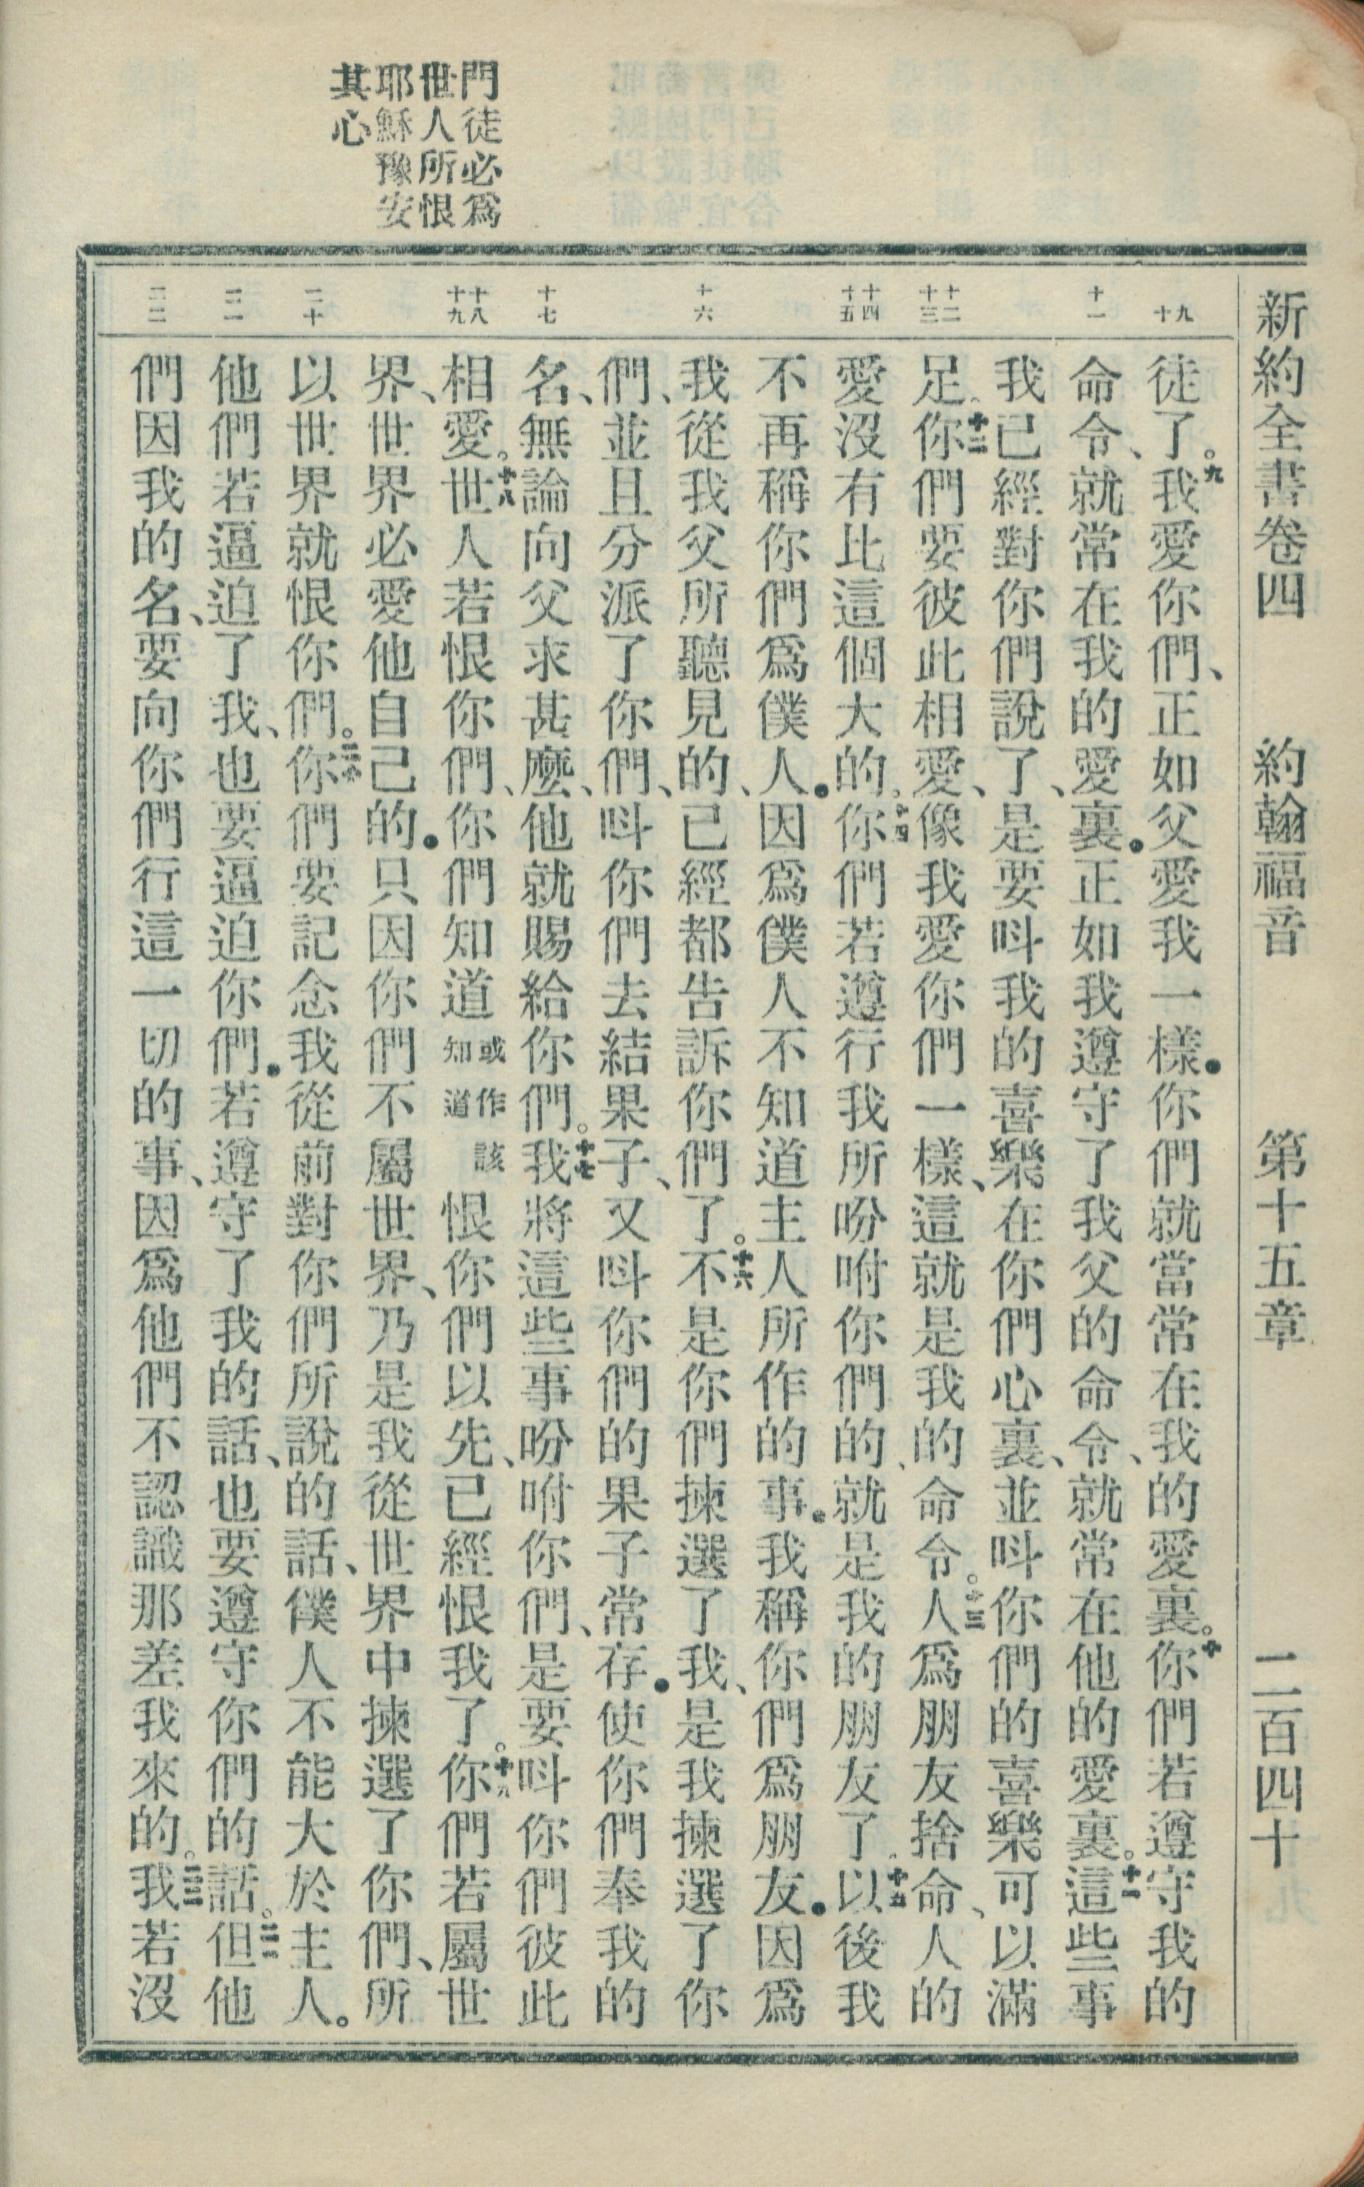 門徒必爲
世人所恨
耶穌豫安
其心
新約全書卷四 約翰福音 第十五章 二百四十
九
十
十一
十二
十三
十四
十五
十六
十七
十八
十九
二十
二一
二二
徒了。九我愛你們、正如父愛我一樣．你們就當常在我的愛裏。十你們若遵守我的
命令、就常在我的愛裏．正如我遵守了我父的命令、就常在他的愛裏。十一這些事
我已經對你們說了、是要呌我的喜樂在你們心裏、並呌你們的喜樂可以滿
足。十二你們要彼此相愛、像我愛你們一樣、這就是我的命令。十三人爲朋友捨命、人的
愛沒有比這個大的。十四你們若遵行我所吩咐你們的、就是我的朋友了。十五以後我
不再稱你們爲僕人．因爲僕人不知道主人所作的事．我稱你們爲朋友．因爲
我從我父所聽見的、已經都告訴你們了。十六不是你們揀選了我、是我揀選了你
們、並且分派了你們、呌你們去結果子、又呌你們的果子常存．使你們奉我的
名、無論向父求甚麼、他就賜給你們。十七我將這些事吩咐你們、是要呌你們彼此
相愛。十八世人若恨你們、你們知道或作該知道恨你們以先、已經恨我了。十九你們若屬世
界、世界必愛他自己的．只因你們不屬世界、乃是我從世界中揀選了你們、所
以世界就恨你們。二十你們要記念我從前對你們所說的話、僕人不能大於主人。
他們若逼迫了我、也要逼迫你們．若遵守了我的話、也要遵守你們的話。二一但他
們因我的名、要向你們行這一切的事、因爲他們不認識那差我來的。二二我若沒